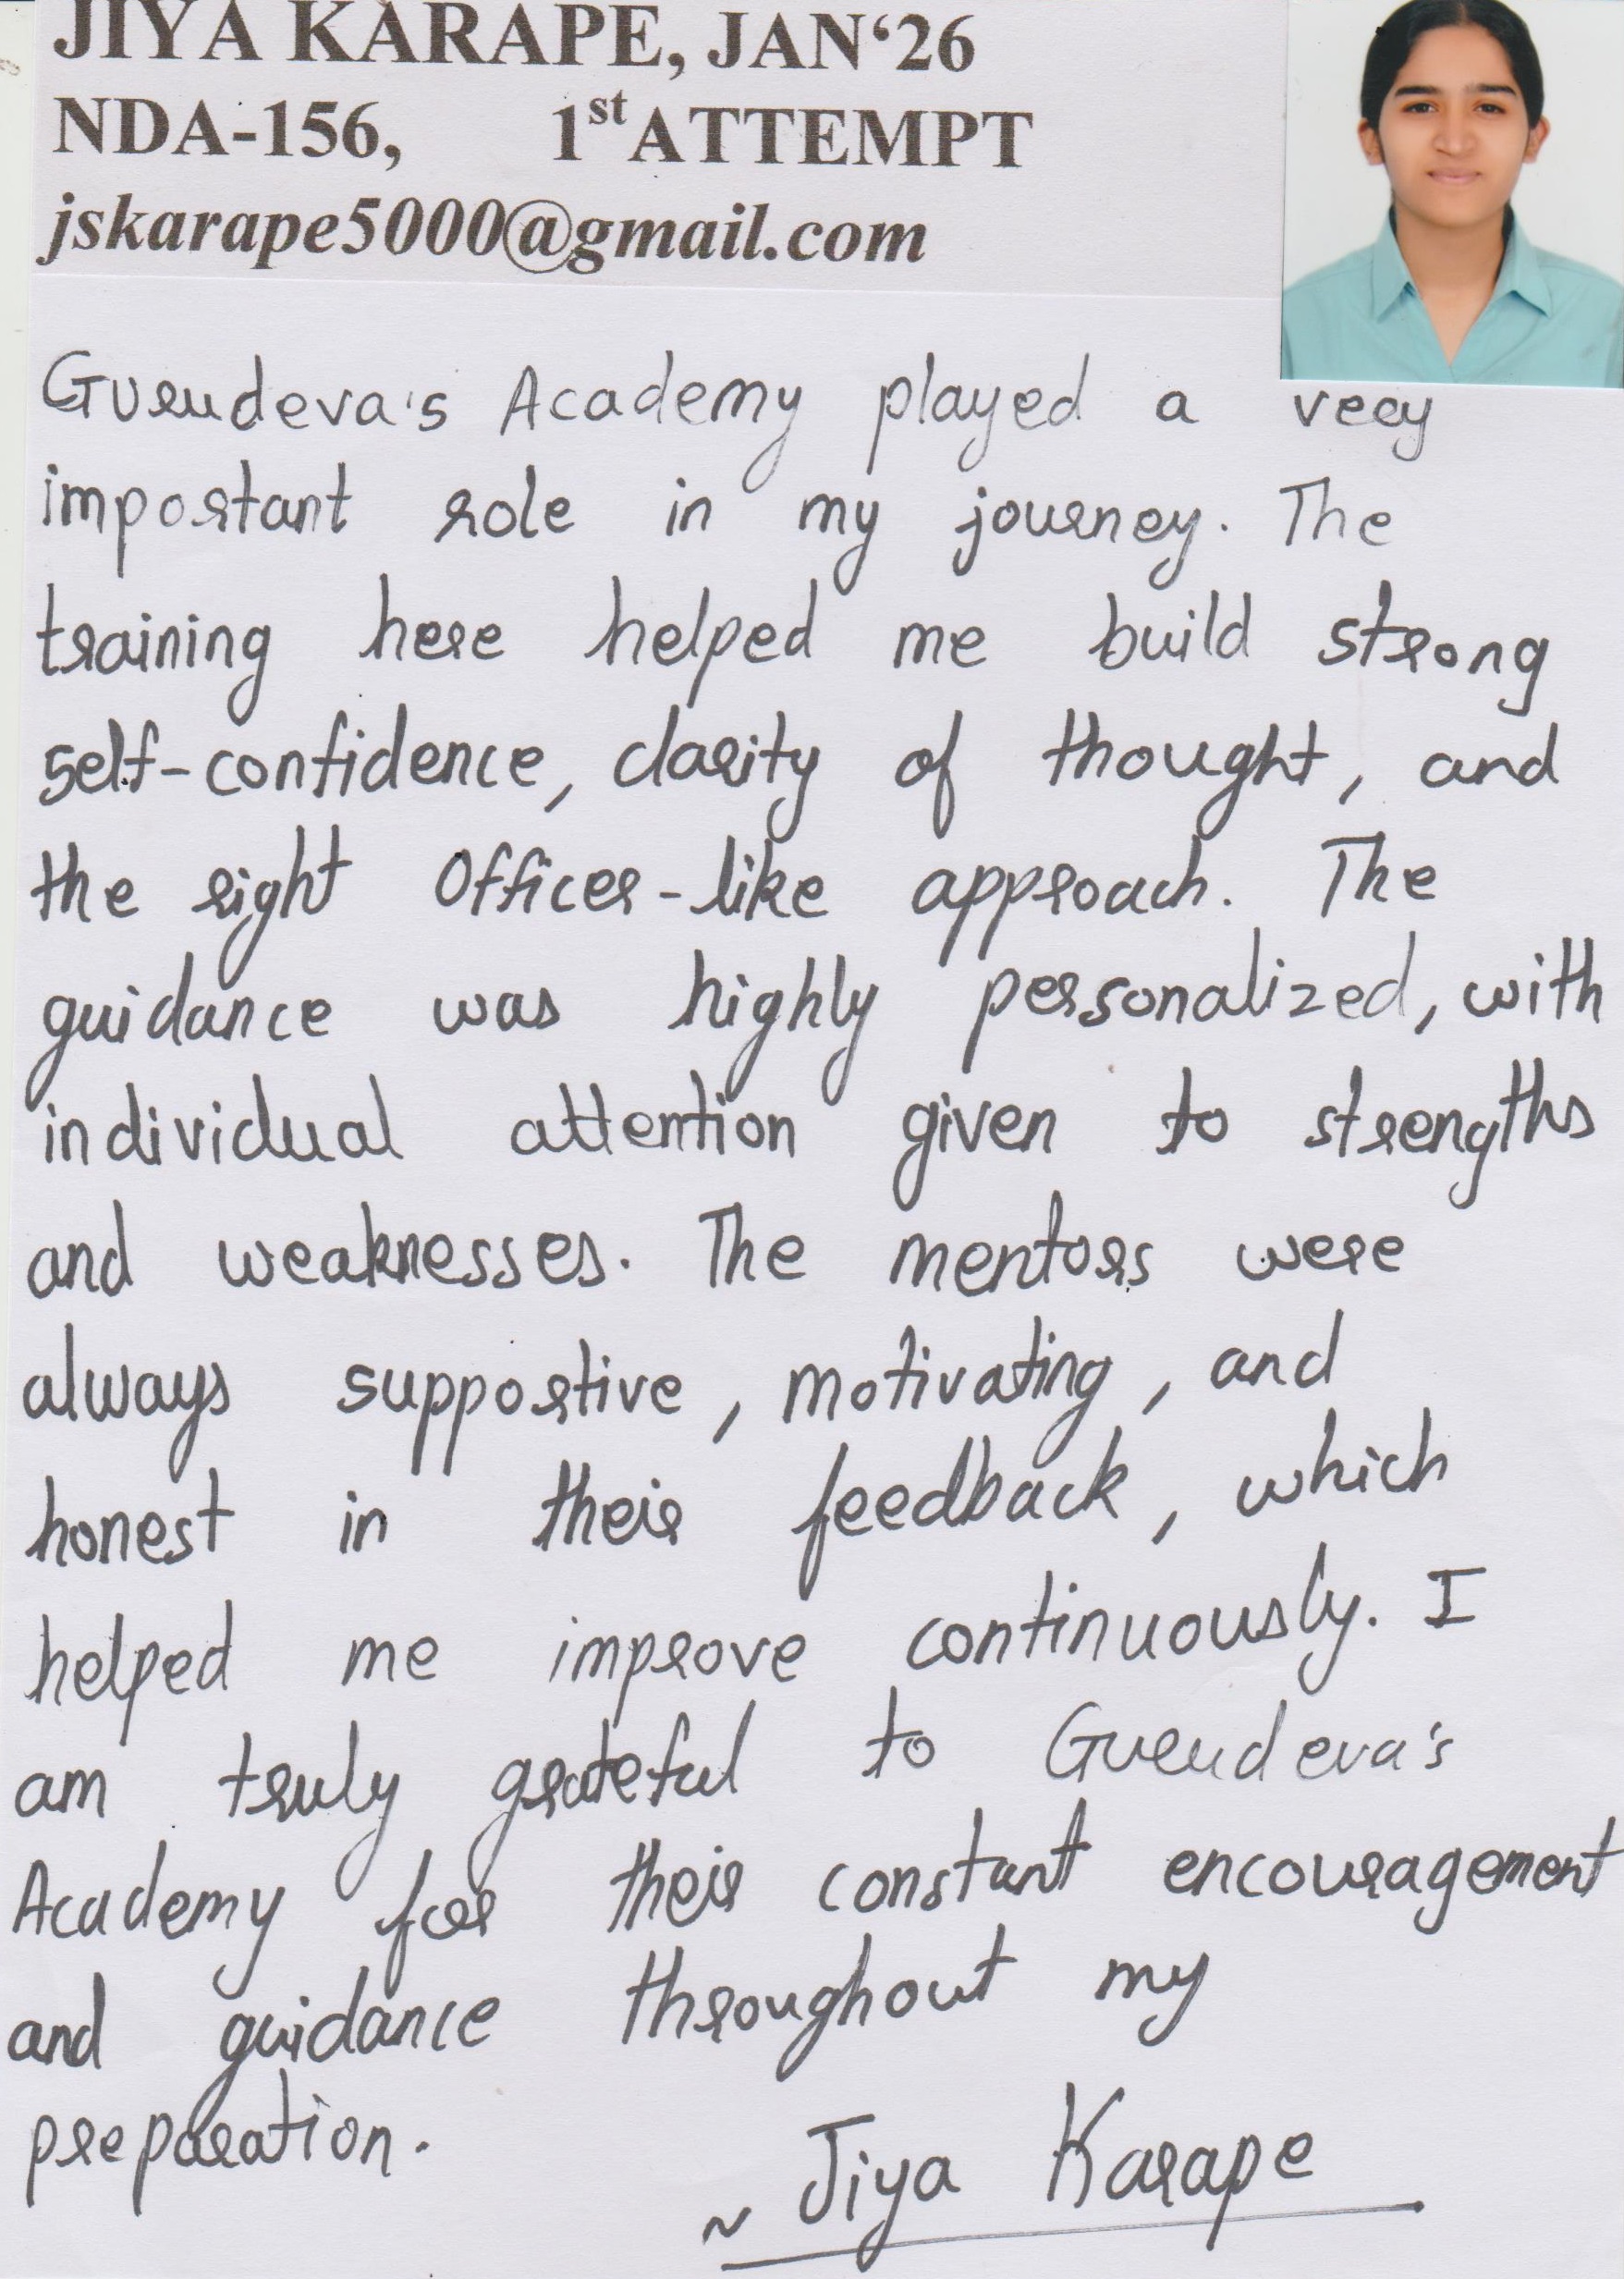 JIYA KARAPE, JAN‘26
NDA-156, 1st ATTEMPT
jskarape5000@gmail.com
Gurudeva's Academy played a very
important role in my journey. The
training here helped me build strong
self-confidence, clarity of thought, and
the right Officer-like approach. The
guidance was highly personalized, with
individual attention given to strengths
and weaknesses. The mentors were
always supportive, motivating, and
honest in their feedback, which
helped me improve continuously. I
am truly grateful to Gurudeva's
Academy for their constant encouragement
and guidance throughout my
preparation.
~ Jiya Karape